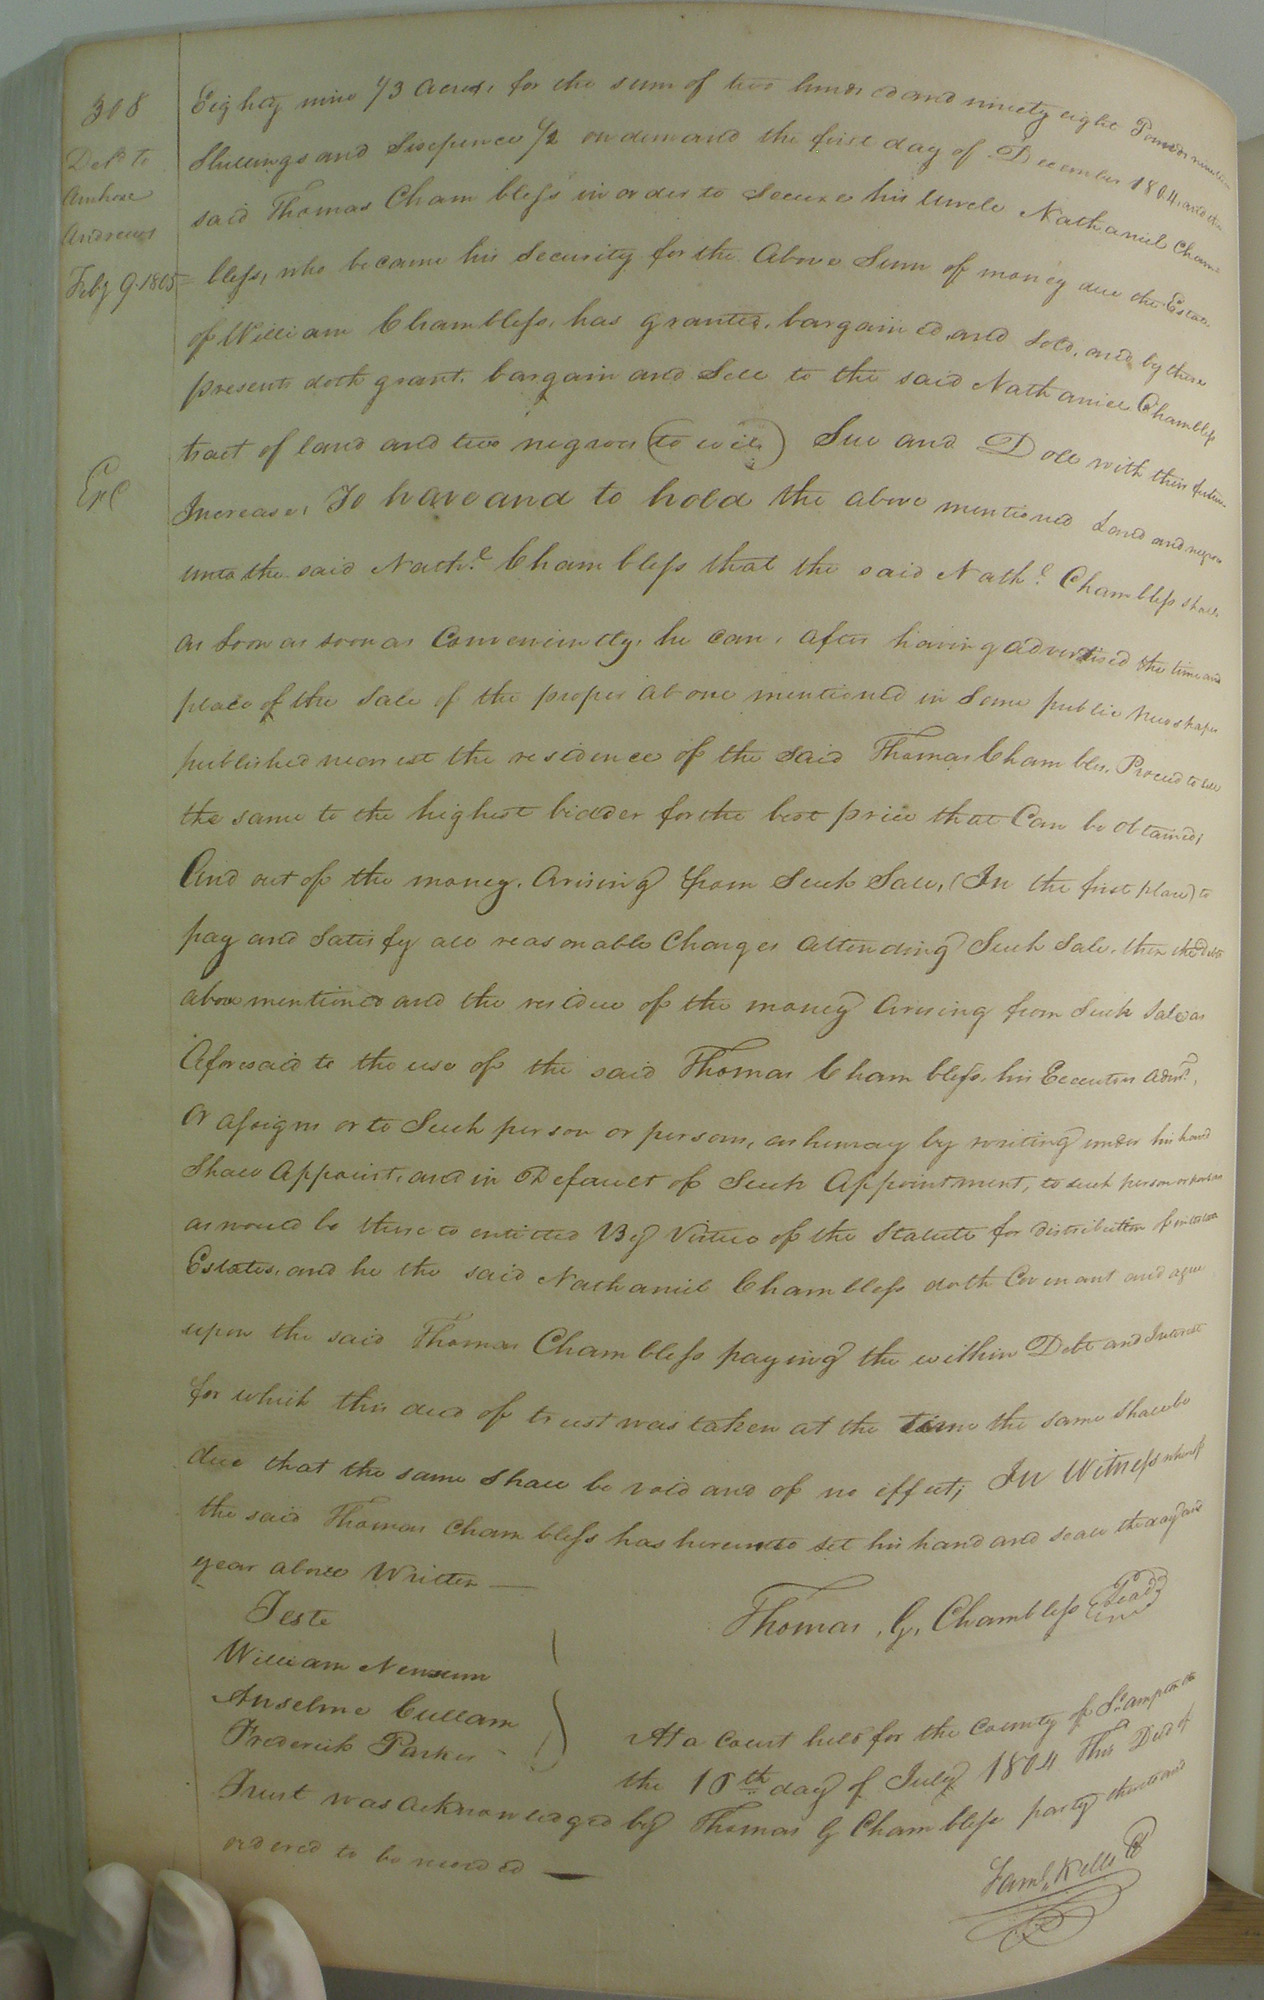 308
Deld to
Ambrose
Andrews
Feby 9. 1805
Exd
Eighty nine 1/3 acres, for the sum of two hundred and ninety eight Pounds nineteen
Shillings and Sixpence 1/2 on demand the first day of December 1804, and the
said Thomas Chambless in order to Secure his Uncle Nathaniel Cham
= bless, who became his Security for the Above Sum of money due the Estate
of William Chambless, has granted, bargained, and Sold, and by these
presents doth grant, bargain and Sell to the said Nathaniel Chambless
tract of land and two negroes (to wit) Sue and Doll with their future
Increase, To have and to hold the above mentioned Land and negroes
unto the said Nathl. Chambless that the said Nathl. Chambless shall
as soon as soon as Conveniently, he can, after having advertised the time and
place of the Sale of the proper above mentioned in Some public Newspaper
published nearest the residence of the said Thomas Chambless, Proceed to sell
the same to the highest bidder for the best price that Can be obtained;
And out of the money, Arising from Such Sale, (In the first place) to
pay and Satisfy all reasonable Charges attending Such Sale, then the Debt
above mentioned and the residue of the money Arising from Such Sale as
Aforesaid to the use of the said Thomas Chambless, his Executors admrs,
Or assigns or to Such person or persons, as he may by writing under his hand
Shall Appoint, and in Default of Such Appointment, to such person or persons
as would be there to entitled By Virtue of the Statute for distribution of intestates
Estates, and he the said Nathaniel Chambless doth Covenant and agree
upon the said Thomas Chambless paying the within Debt and Interest
for which this deed of trust was taken at the time the same shall be
due that the same shall be void and of no effect; In Witness whereof
the said Thomas Chambless has hereunto set his hand and seale the day and
year above Written —
Teste
Thomas, G, Chambless Seal
William Newsum
Anselme Cullam
Frederick Parker
At a Court held for the County of S.ampton on
the 16th day of July 1804 This Deed of
Trust was acknowledged by Thomas G Chambless party thereto and
ordered to be recorded —
Saml. Kello C